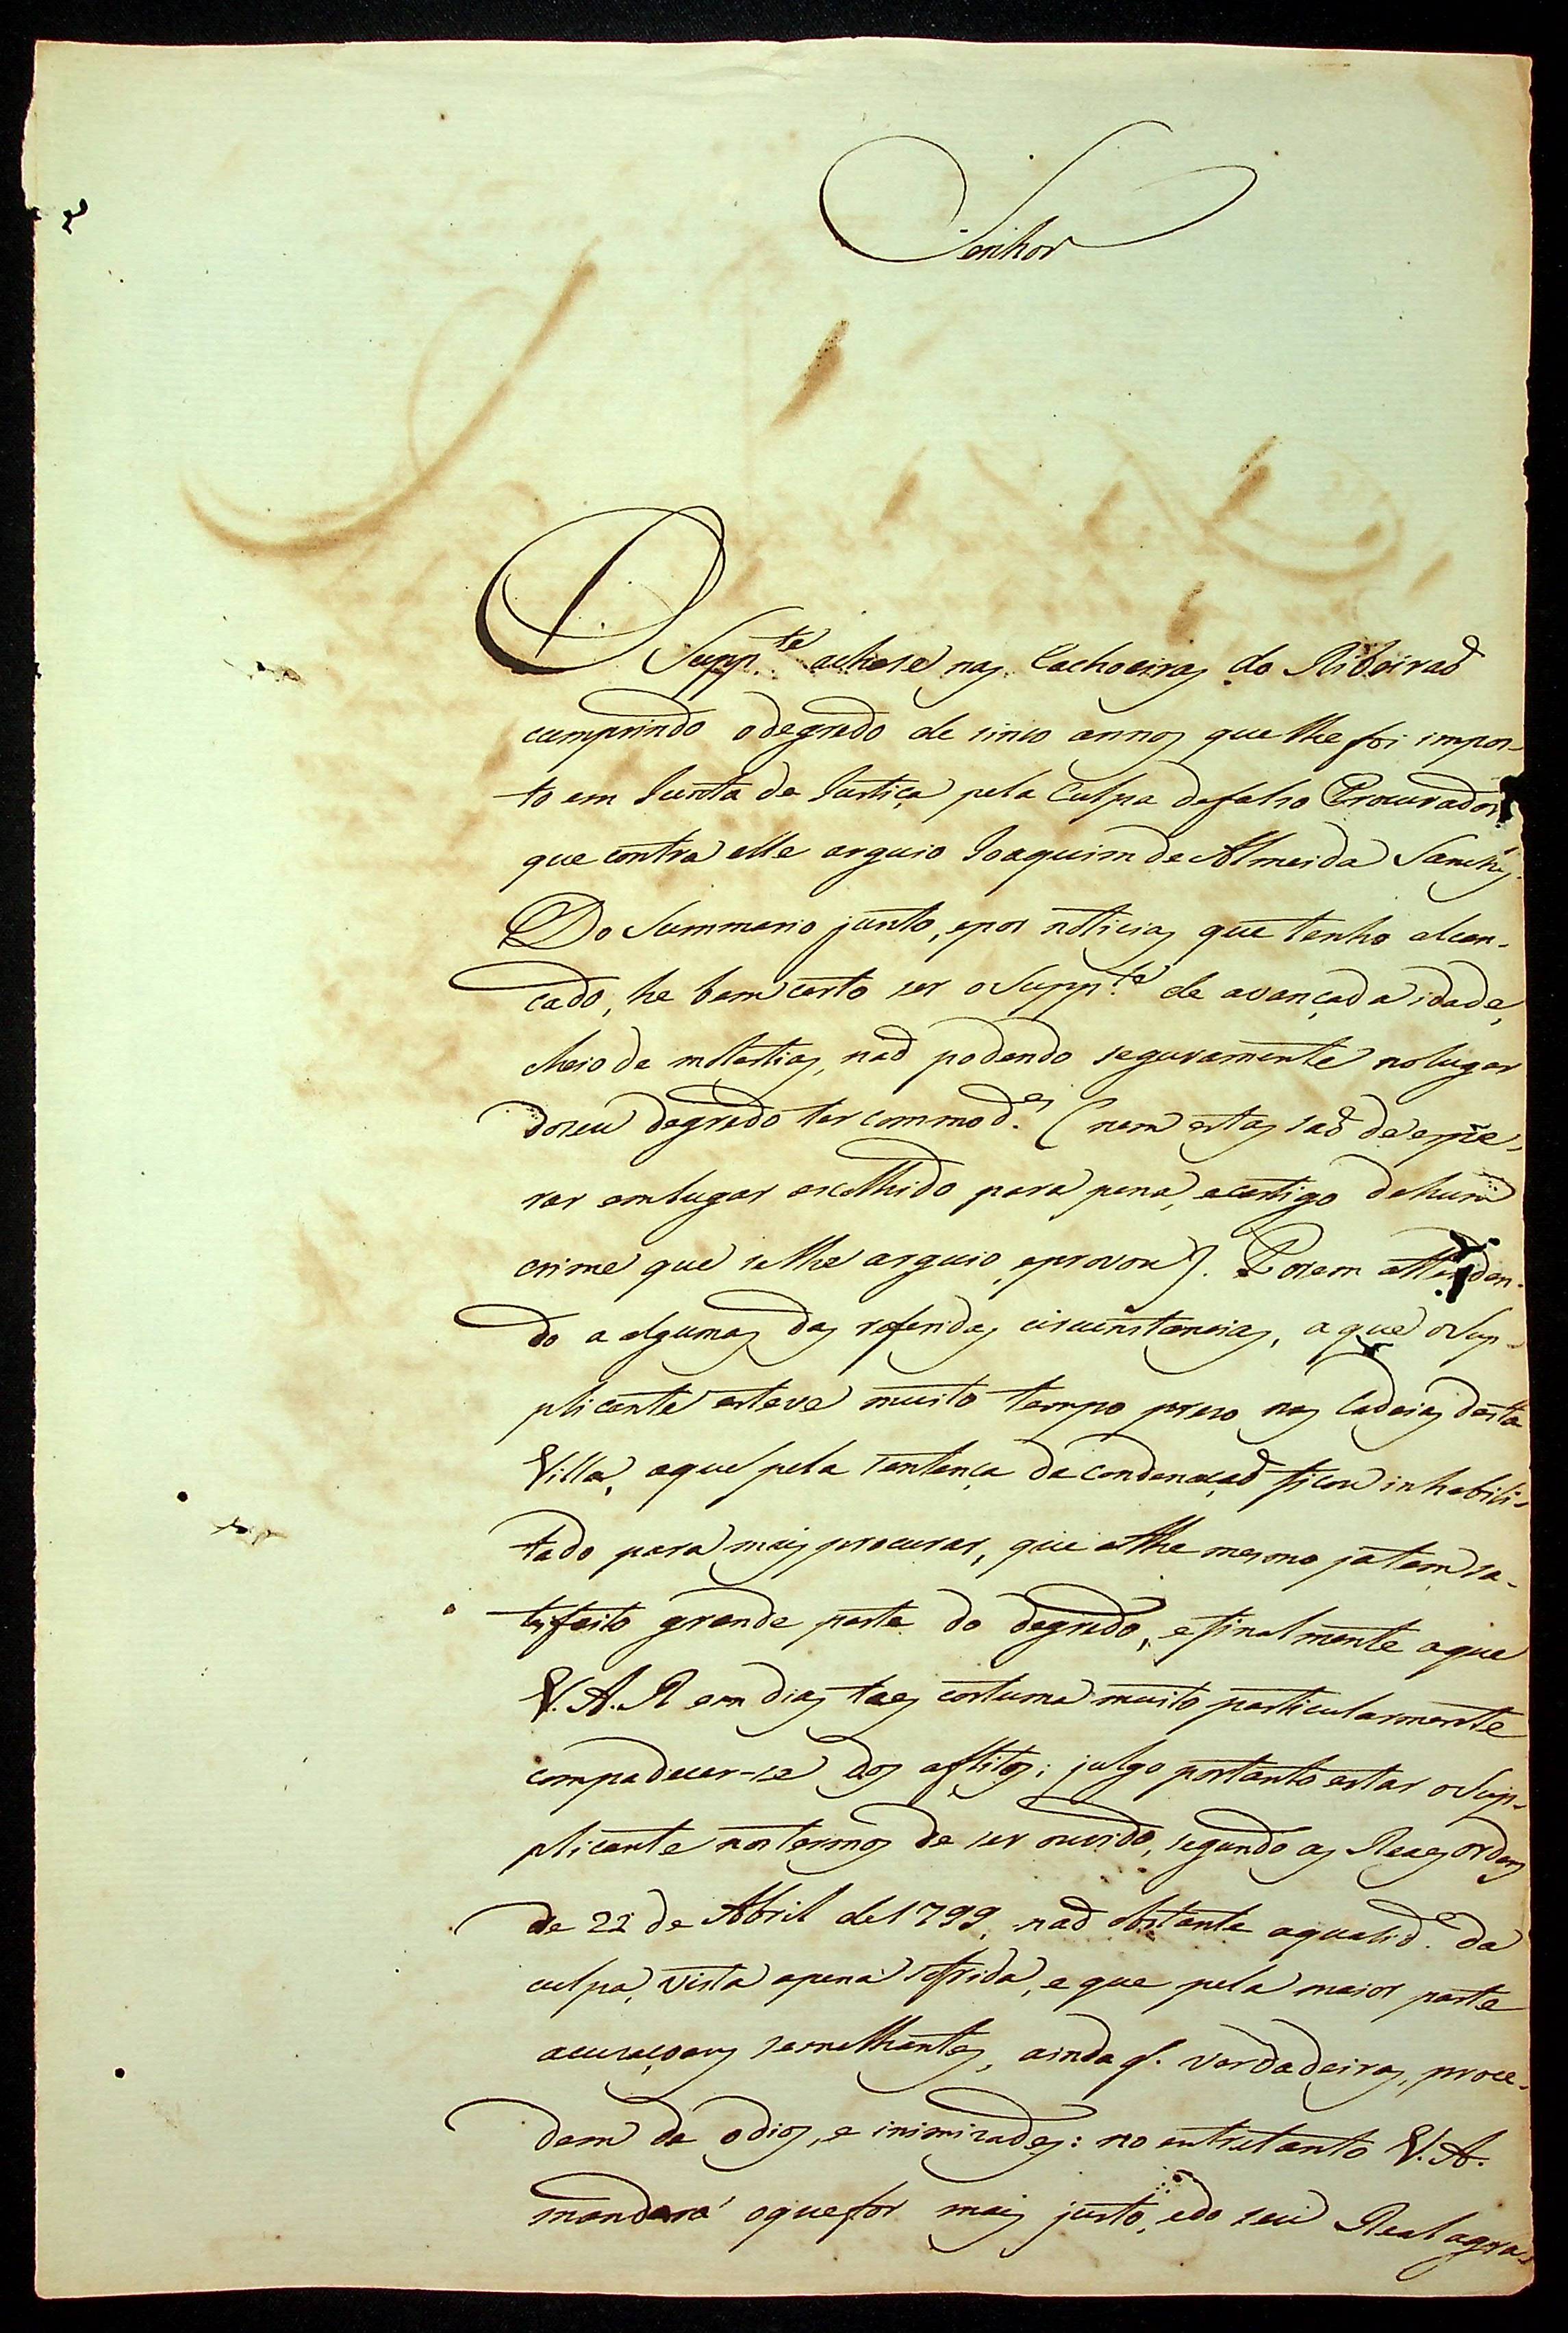 Senhor
O Supp.te achase nas Cachoeiras do Ribeiraõ
cumprindo o degredo de sinco annos que lhe foi impos-
to em Junta de Justiça pela Culpa de falso Procurador,
que contra elle arguio Joaquim de Almeida Sanches.
Do Summario junto, e por noticias que tenho alcan-
cado, he bem certo ser o Supp.te de avançada idade,
cheio de molestias, naõ podendo seguramente no lugar
do seu degredo ter commod.es (nem estas saõ de espe-
rar em lugar escolhido para pena, e castigo de hum
crime que se lhe arguio, e provou). Porem attenden-
do a algumas das referidas circunstancias, a que o Sup-
plicante esteve muito tempo prezo nas Cadeias desta
Villa, a que pela sentença de condenaçaõ ficou inhabili-
tado para mais procurar, que athe mesmo ja tem sa-
tisfeito grande parte do degredo, e finalmente a que
V. A. R em dias taes costuma muito particularmente
compadecer-se dos aflitos; julgo portanto estar o Sup-
plicante nos termos de ser ouvido, segundo as Reaes ordens
de 22 de Abril de 1799, naõ obstante a qualid.e da
culpa, vista a pena sofrida, e que pela maior parte
acusaçoens semelhantes, ainda q. verdadeiras, proce-
dem de odios, e inimizades: no entretanto V. A.
mandará o que for mais justo, e do seu Real agra-